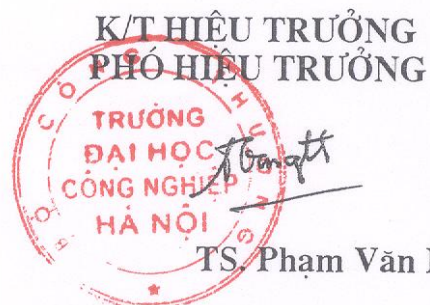 K/T HIỆU TRƯỞNG
PHÓ HIỆU TRƯỞNG
BỘ CÔNG THƯƠNG
TRƯỜNG
ĐẠI HỌC
CÔNG NGHIỆP
HÀ NỘI
TS. Phạm Văn